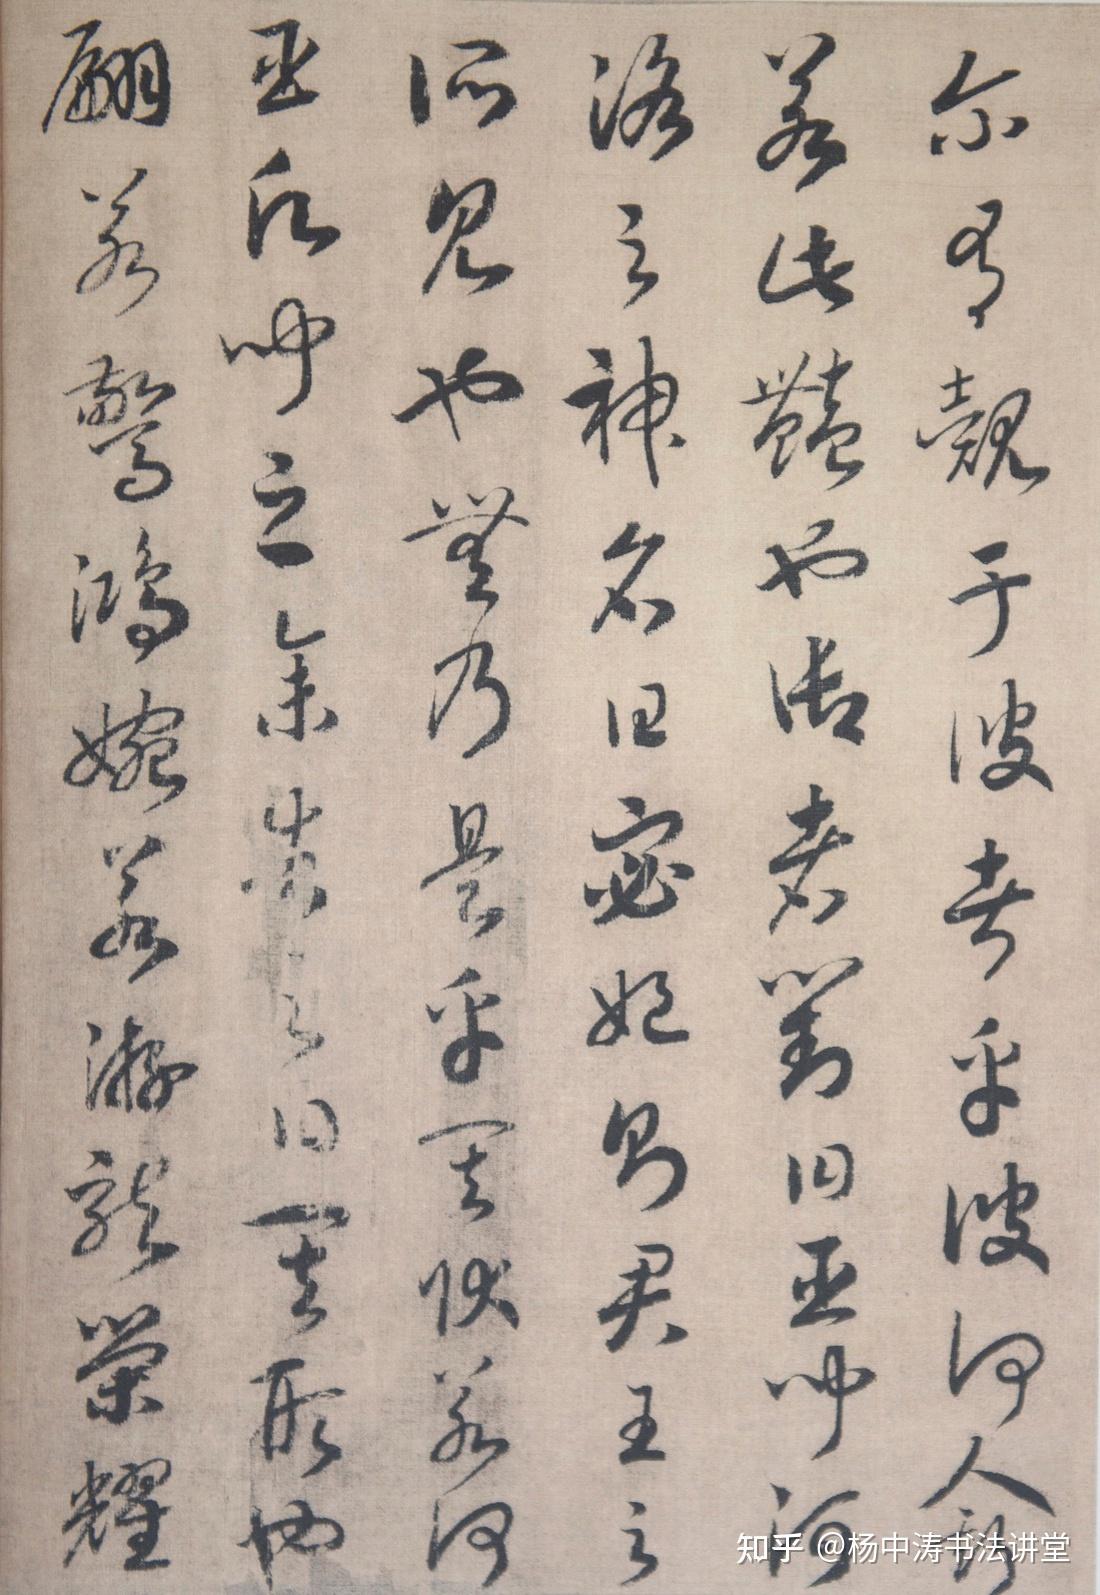 尔有觌于彼者乎彼何人斯
若此艳也御者对曰臣闻河
洛之神名曰宓妃则君王之
所见也无乃是乎其状若何
臣愿闻之余告之曰其形也
翩若惊鸿婉若游龙荣耀
知乎 @杨中涛书法讲堂